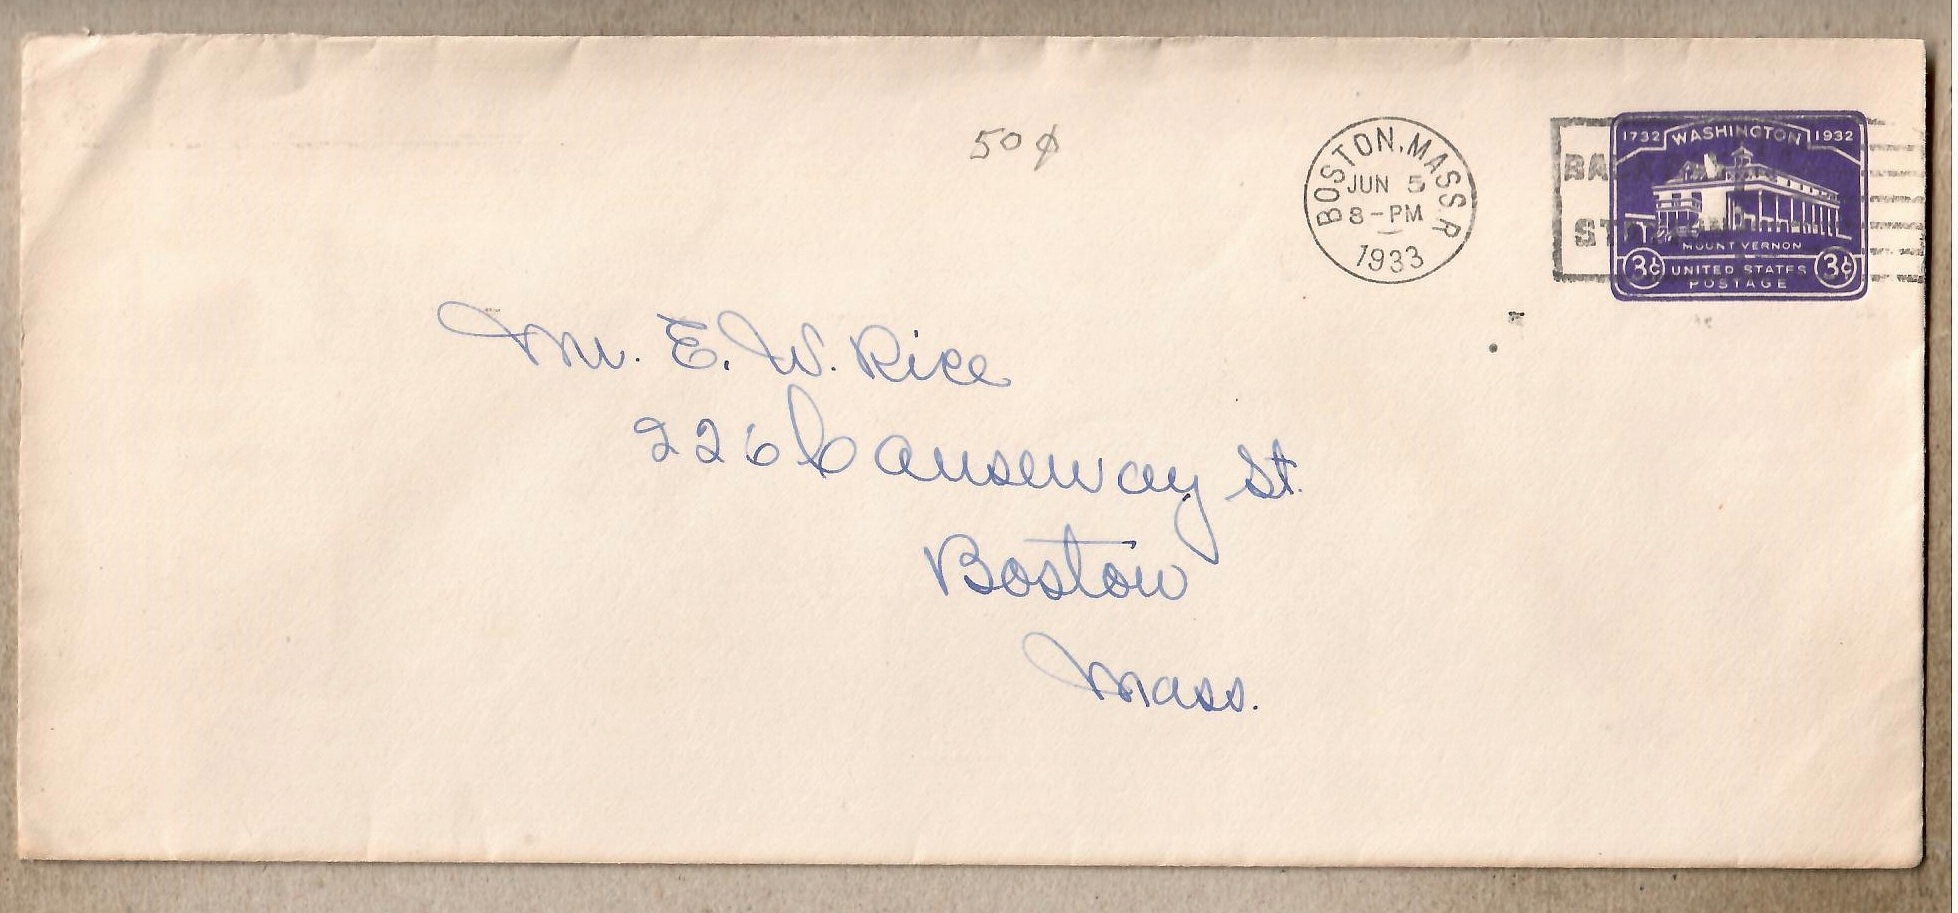 50¢
BOSTON, MASS. R
JUN 5
8-PM
1933
1732 WASHINGTON 1932
MOUNT VERNON
3¢ UNITED STATES 3¢
POSTAGE
Mr. E. W. Rice
226 Causeway St.
Boston
Mass.